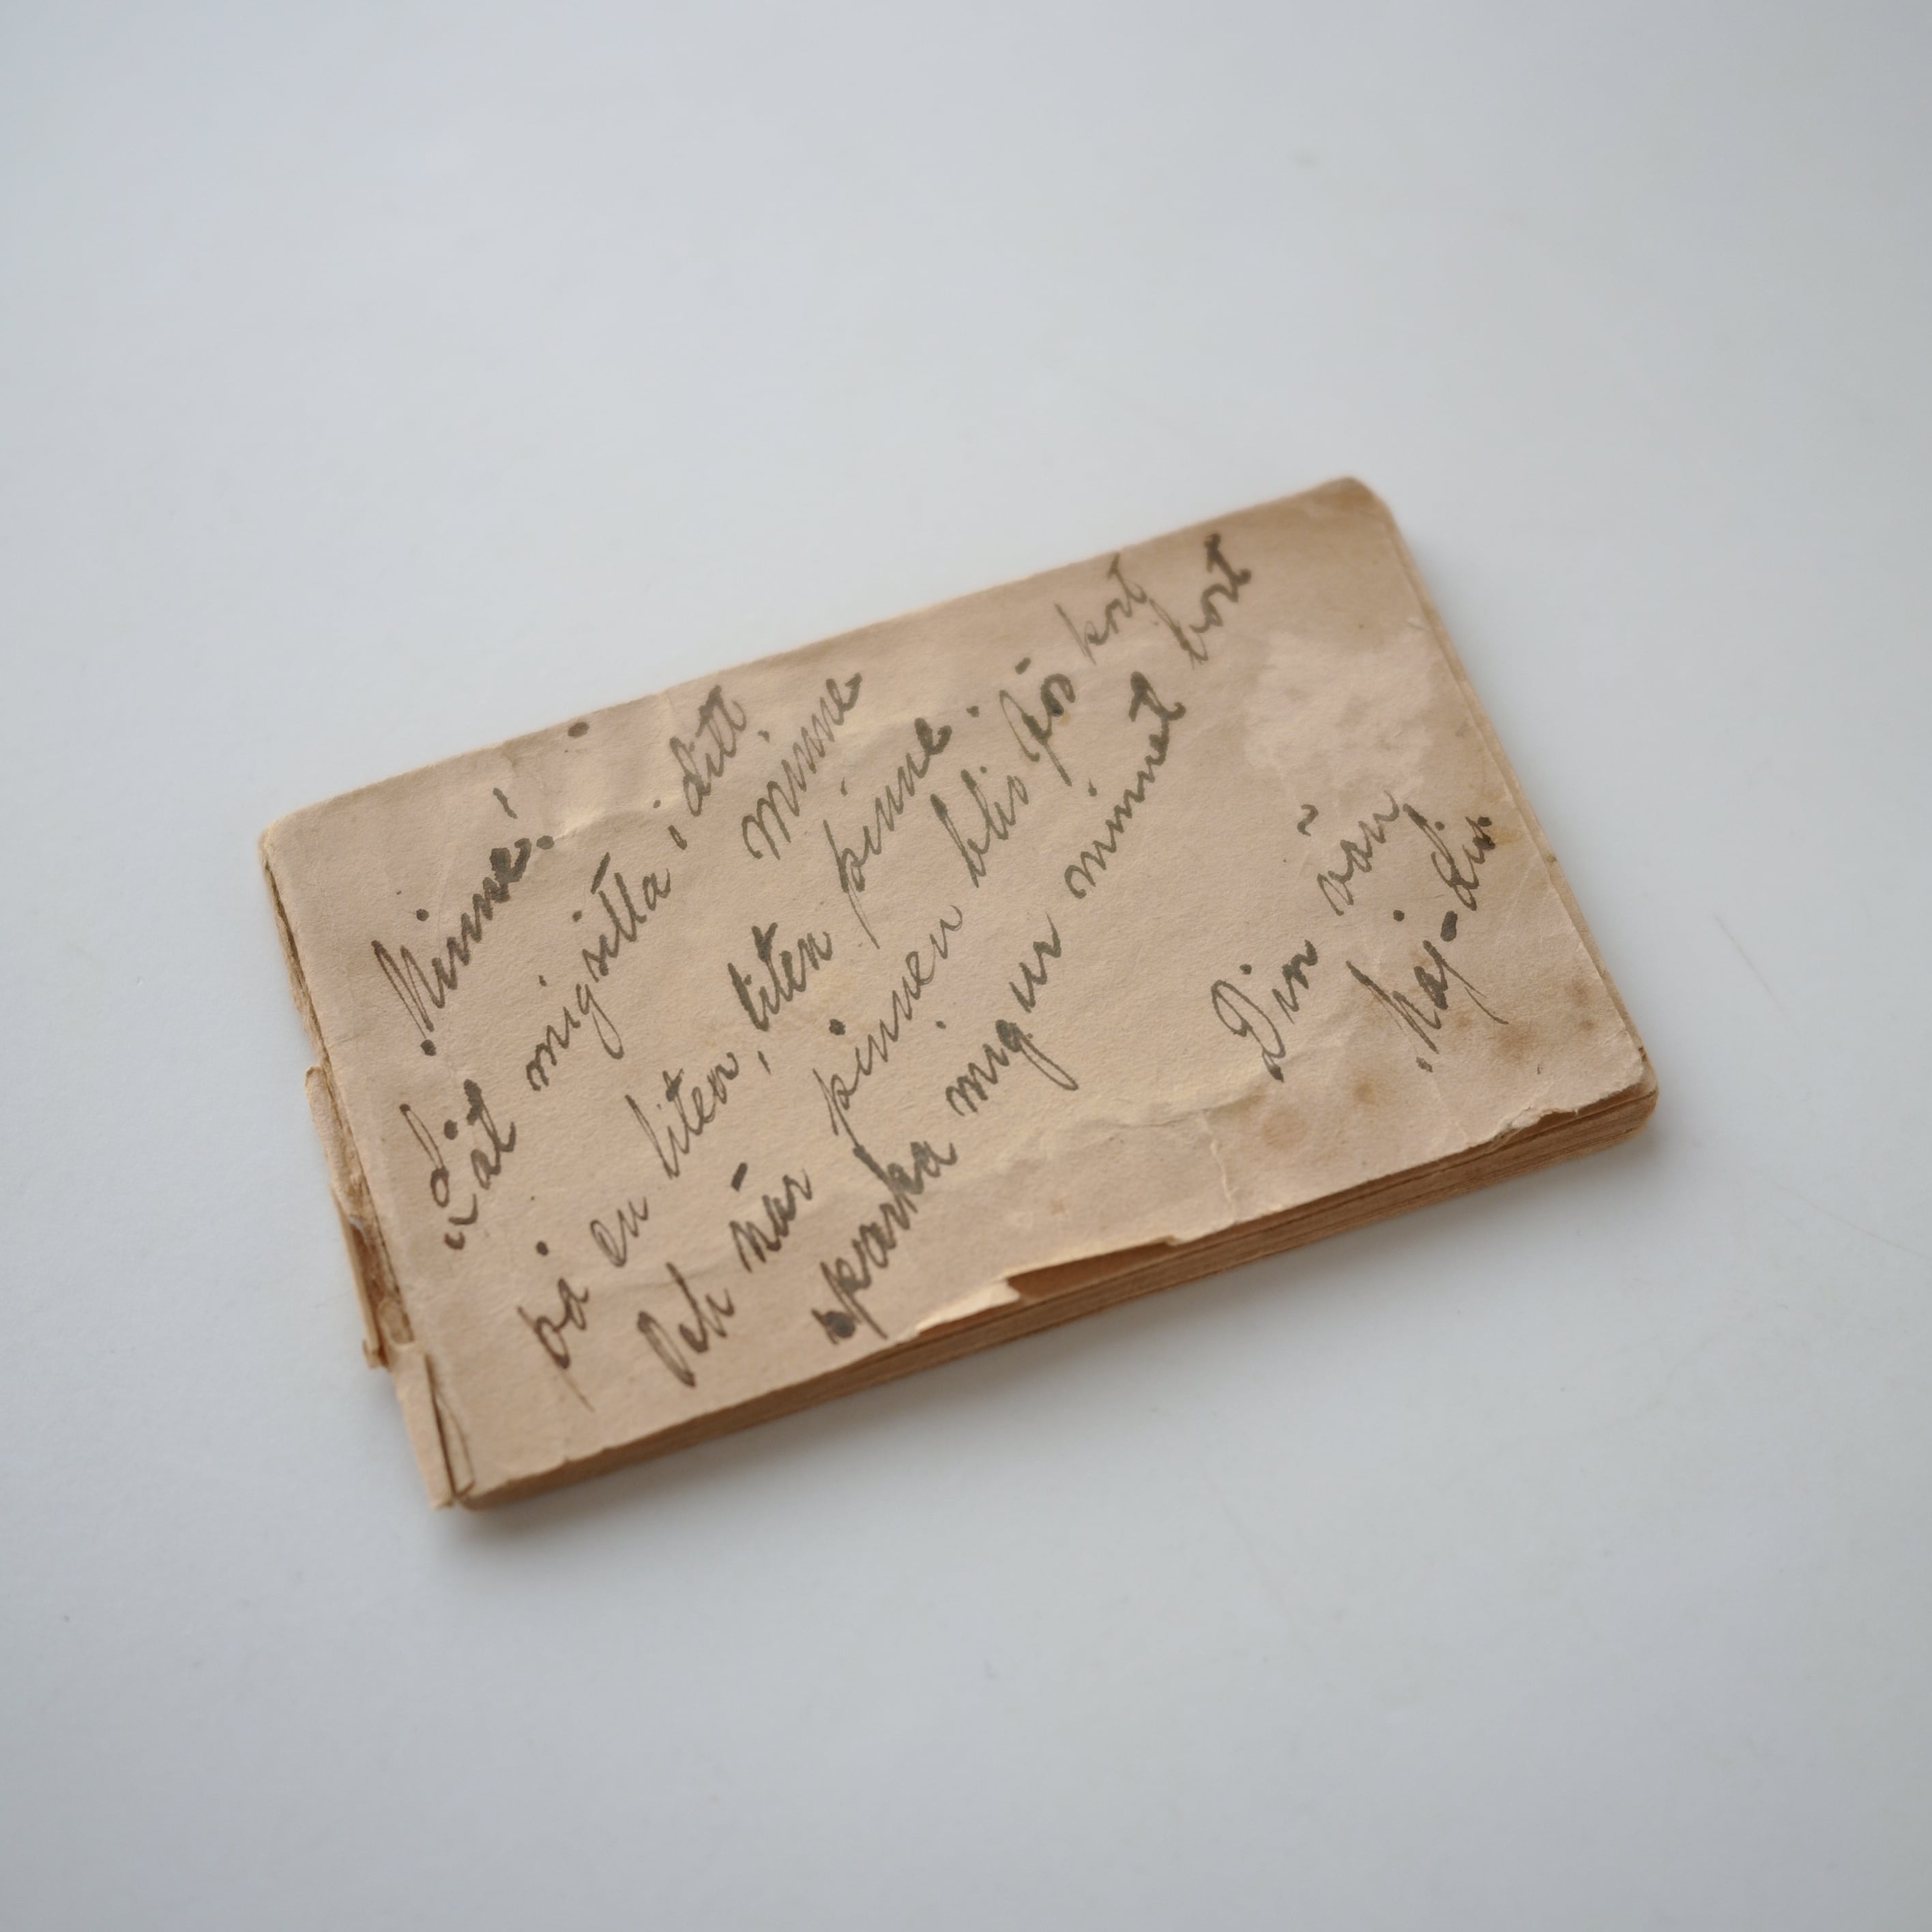 Minne!
Låt mig sitta i ditt
minne
på en liten, liten pinne.
Och när pinnen blir för kort
sparka mig ur minnet bort
Din vän
Kaj-Liv